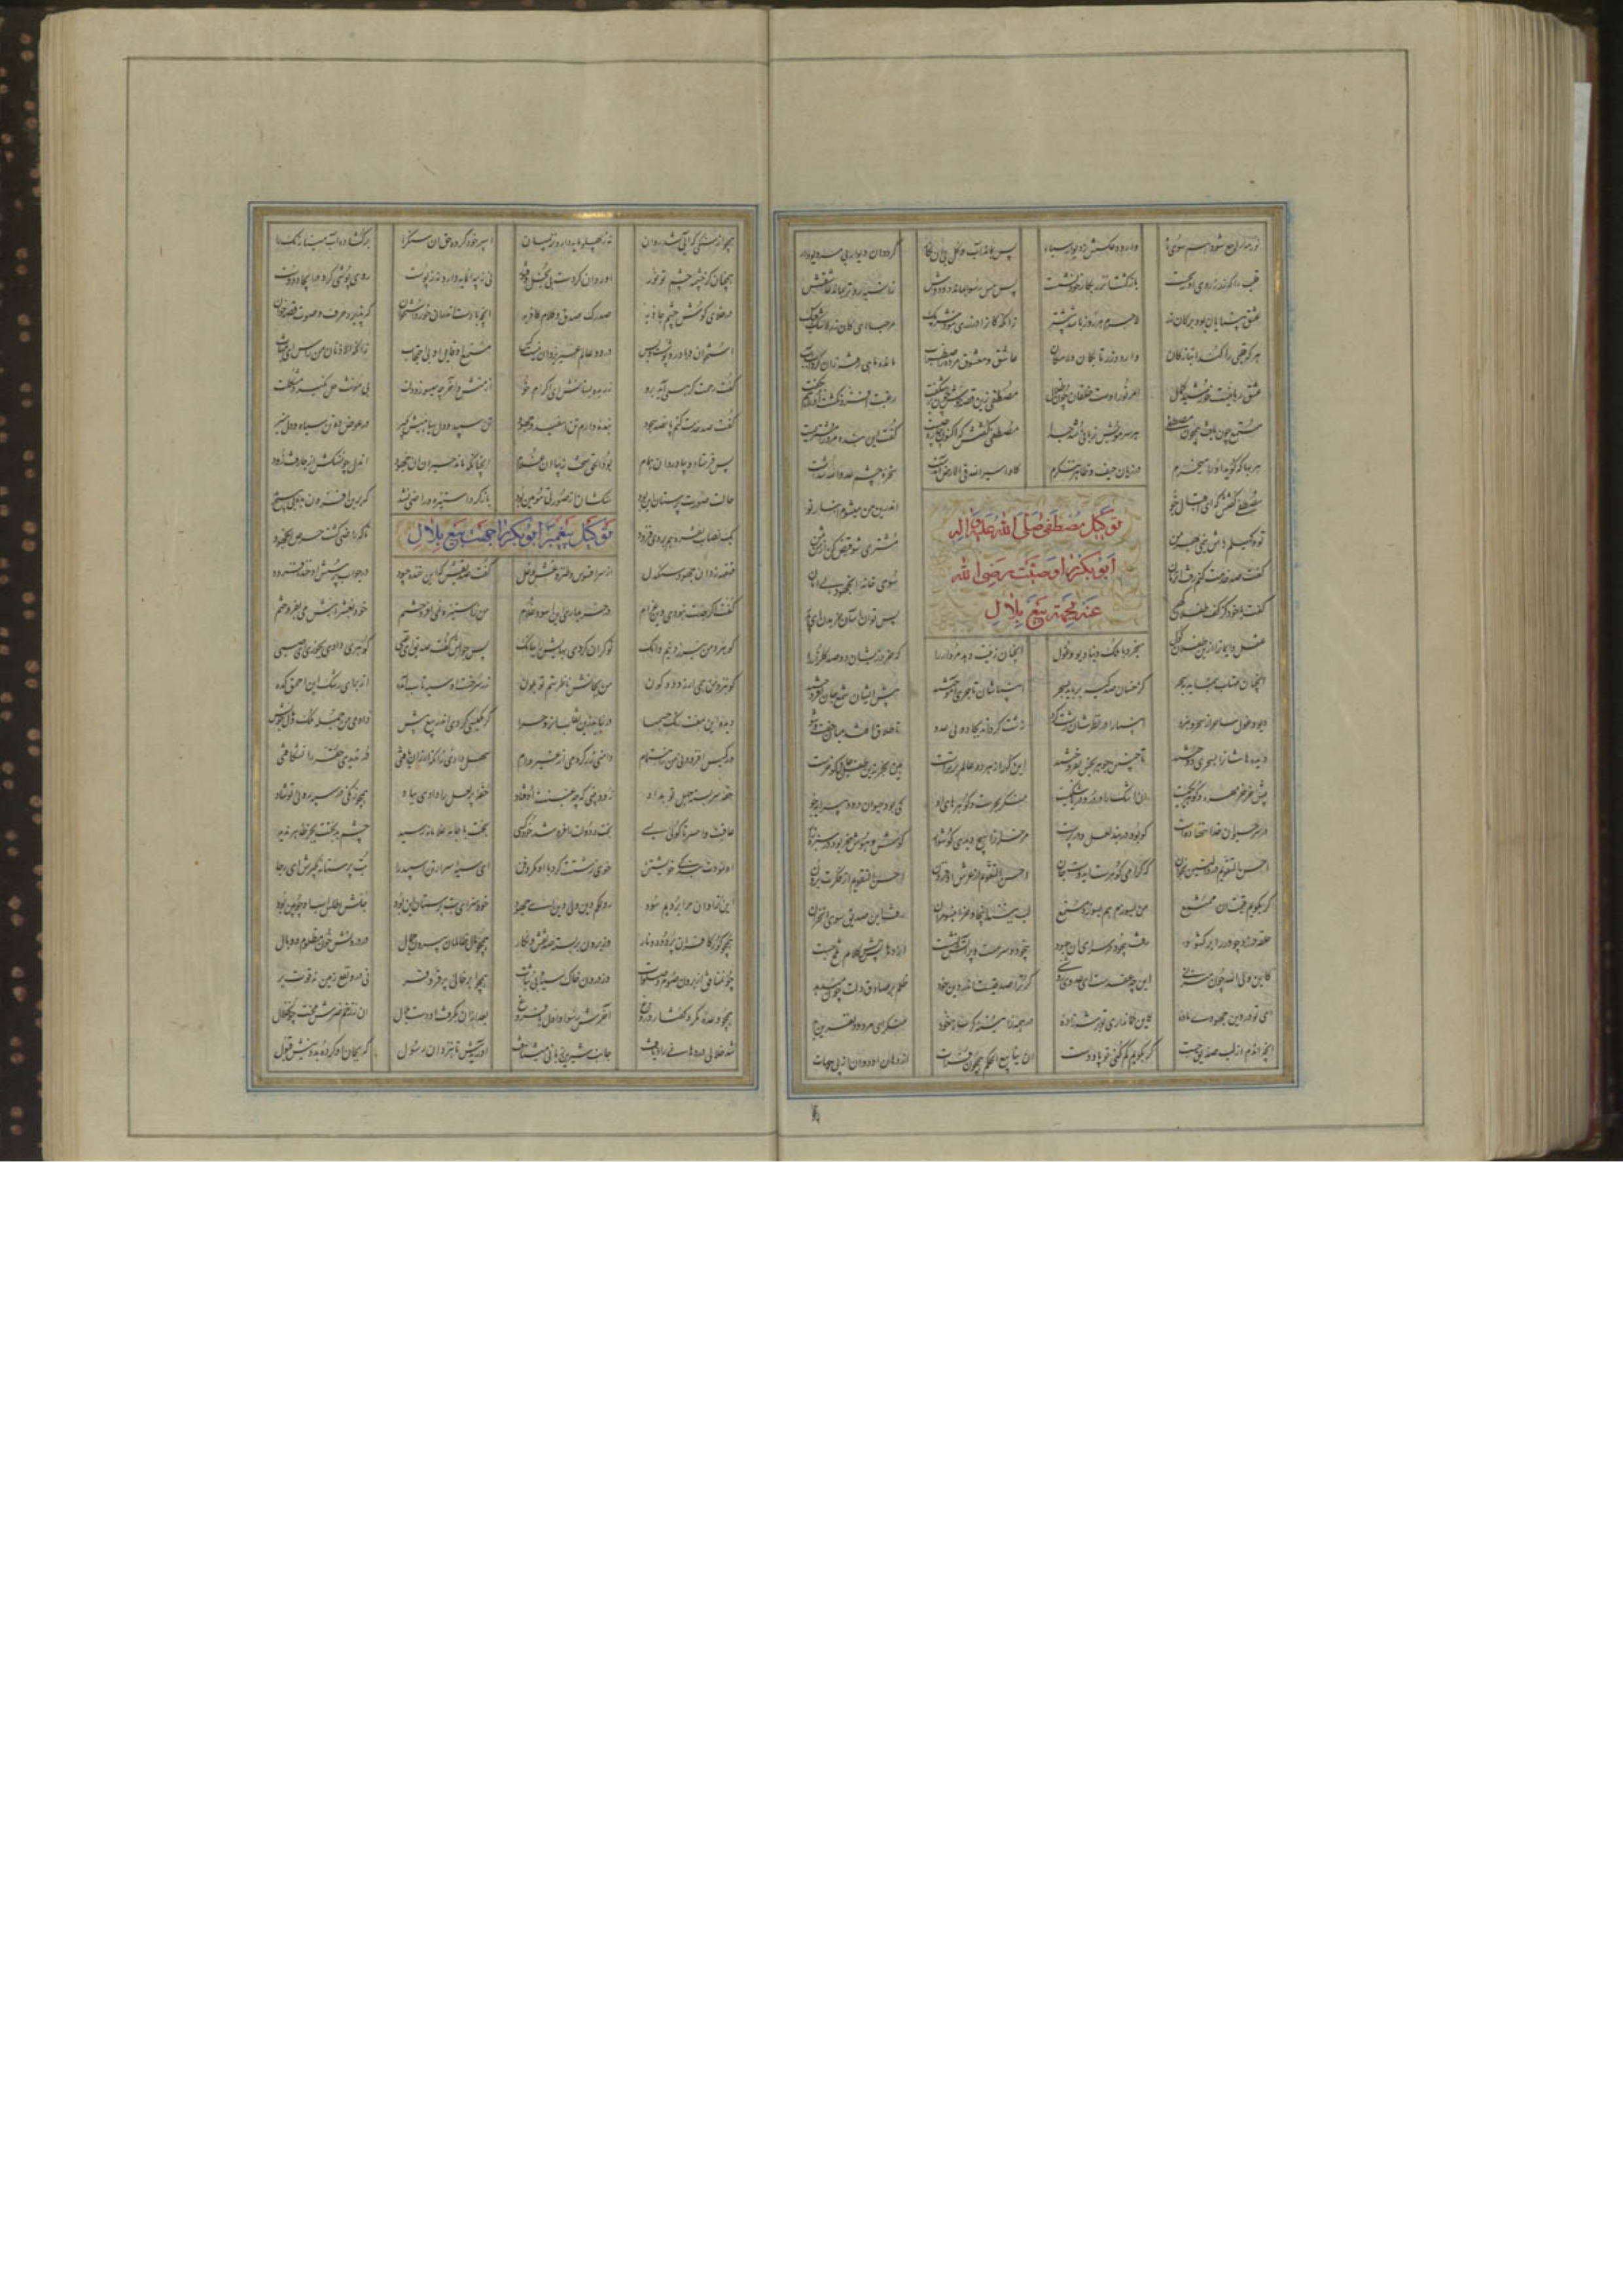 نور مه راجع شود هم سوی ماه وارود عکسش ز دیوار سیاه پس بماند آب و گل بی آن نگار گردد آن دیوار بی مه دیووار
قلب را که زر ز روی او بجست بازگشت آن زر بکان خود نشست پس مس رسوا بماند دودوش زو سیه روتر بماند عاشقش
عشق بینایان بود بر کان زر لاجرم هر روز باشد بیشتر زانکه کان را در زری نبود شریک مرحبا ای کان زر لاشک فیک
هر که قلبی را کند انباز کان وا رود زر تا بکان لامکان عاشق و معشوق مرده ز اضطراب مانده ماهی رفته زان گرداب آب
عشق ربانیست خورشید کمال امر نور اوست خلقان چون ظلال مصطفی زین قصه چون خوش برشکفت رغبت افزون گشت او را هم بگفت
مستمع چون یافت همچون مصطفی هر سر مویش زبانی شد جدا مصطفی گفتش که اکنون چاره چیست گفت این بنده مر او را مشتریست
هر بها که گوید او را میخرم در زیان حیف و ظاهر ننگرم کاو اسیر الله فی الارض آمدست سخره خشم عدو الله شدست
توکیل مصطفی صلی الله علیه و آله
ابوبکر را وصیت رضی الله
عنه بجهة بیع بلال
مصطفی گفتش که ای اقبال جو اندرین من میشوم انباز تو
تو وکیلم باش نیمی بهر من مشتری شو قبض کن از من ثمن
گفت صد خدمت کنم رفت آن زمان سوی خانه آن جهود بی امان
گفت با خود کز کف طفلان گهر پس توان آسان خریدن ای پدر
عقل و ایمان را ازین طفلان گول میخرد با ملک دنیا دیو غول آنچنان زینت دهد مردار را که خرد زیشان دو صد گلزار را
آنچنان مهتاب بنماید بسحر کز خسان صد کیسه برباید بسحر انبیاشان تاجری آموختند پیش ایشان شمع افروختند
دیو و غول ساحر از سحر و نبرد انبیا را در نظرشان زشت کرد زشت گرداند بجادویی عدو تا طلاق افتد میان جفت و شو
دیدهاشان را بسحری دوختند تا چنین جوهر بخس بفروختند این گهر از هر دو عالم برترست هین بخر زین طفل جاهل کو خرست
پیش خر خرمهره و گوهر یکیست آن اشک را در در و دریا شکیست منکر بحرست و گوهرهای او کی بود حیوان در و پیرایه جو
در سر حیوان خدا ننهاده است کو بود در بند لعل و درپرست مر خران را هیچ دیدی گوشوار گوش و هوش خر بود در سبزه زار
احسن التقویم در والتین بخوان که گرامی گوهرست ای دوست جان احسن التقویم از عرش او فزون احسن التقویم از فکرت برون
گر بگویم قیمت آن ممتنع من بسوزم هم بسوزد مستمع لب ببند اینجا و خر این سو مران رفت این صدیق سوی آن خران
حلقه در زد چو در را بر گشود رفت بیخود در سرای آن جهود بیخود و سرمست و پر آتش نشست از دهانش بس کلام تلخ جست
کاین ولی الله چون میزنی این چه حقدست ای عدو روشنی گر ترا صدقیست اندر دین خود ظلم بر صادق دلت چون میدهد
ای تو در دین جهودی ماده کاین گمان داری تو بر شهزاده در همه ز آیینه کژساز خود منگر ای مردود نفرین
آنچه آن دم از لب صدیق جست گر بگویم گم کنی تو پا و دست آن ینابیع الحکم همچون فرات از دهان او دوان از بی جهات
همچو از سنگی که آبی شد روان نه ز پهلو مایه دارد نز میان اسپر خود کرده حق آن سنگ را بر گشاده آب مینا رنگ را
همچنان کز چشمه چشم تو نور او روان کردست بی بخل و فتور نی ز پیه آن مایه دارد نه ز پوست روی پوشی کرد در ایجاد دوست
در خلای گوش مدرک صدق کلام آنچه بادست اندر آن خرد استخوان کو پذیرد حرف و صوت قصه خوان
استخوان و باد روپوشست و بس در دو عالم غیر یزدان نیست کس مستمع او قایل او بی احتجاب زانکه الاذنان من الراس ای مثاب
گفت رحمت گر همی آید برو زر بده بستانش ای اکرام خو از منش وا خر چو میسوزد دلت بی مؤنت حل نگردد مشکلت
گفت صد خدمت کنم پانصد سجود بنده دارم تن اسفید و جهود تن سپید و دل سیاهستش بگیر در عوض ده تن سیاه و دل منیر
پس فرستاد و بیاورد آن همام بود الحق سخت زیبا آن غلام آنچنانکه ماند حیران آن جهود آن دل چون سنگش از جا رفت زود
حالت صورت پرستان این بود سنگشان از صورتی مومین بود باز کرد استیزه و راضی نشد که برین افزون بده بی هیچ
یک نصاب نقره هم بر وی فزود تا که راضی گشت حرص آن جهود
توکیل پیغمبر ابوبکر را جهت بیع بلال
قهقهه زد آن جهود سنگدل از سر افسوس و طنز و غش و غل گفت صدیقش که این خنده چه بود در جواب پرسش او خنده فزود
گفت اگر جدت نبودی و غرام در خریداری این اسود غلام من ز استیزه خود بعشر اینش می بفروشم
کو بنزد من نیرزد نیم دانگ تو گران کردی بهایش را ببانگ پس جوابش گفت صدیق ای غبی گوهری دادی بجوزی چون صبی
کو بنزد من همی ارزد دو کون من بجانش ناظرستم تو بلون زر سرخست او سیه تاب آمده از برای رشک این احمق کده
دیده این هفت رنگ جسمها در نیابد زین نقاب آن روح را گر مکیسی کردی در بیع بیش دادمی من جمله ملک و مال خویش
سهل دادی زانکه ارزان یافتی در ندیدی حقه را نشکافتی
حقه سربسته جهل تو بداد زود بینی که چه غبنت اوفتاد حقه پر لعل را دادی بباد همچو زنگی در سیه رویی تو شاد
عاقبت وا حسرتا گویی بسی بخت و دولت را فروشد خود کسی بخت با جامه غلامانه رسید چشم بدبخت بجز ظاهر ندید
او نمودت بندگی خویشتن خوی زشتت کرد با او مکر و فن این سیه اسرار تن اسپید را بت پرستانه بگیر ای ژاژخا
این ترا و آن مرا بردیم سود هین لکم دین ولی دین ای جهود خود سزای بت پرستان این بود جلش اطلس اسب او چوبین بود
همچو گور کافران پر دود و نار وز برون بربسته صد نقش و نگار همچو مال ظالمان بیرون جمال وز درونش خون مظلوم و وبال
چون منافق از برون صوم و صلات وز درون خاک سیاه بی نبات همچو ابر خالی پر قر و قر نی درو نفع زمین نه قوت بر
همچو وعده مکر و گفتار دروغ آخرش رسوا و اول با فروغ بعد از آن بگرفت او دست بلال آن ز زخم ضرس محنت چون خلال
شد خلالی در دهانی راه یافت جانب شیرین زبانی میشتافت